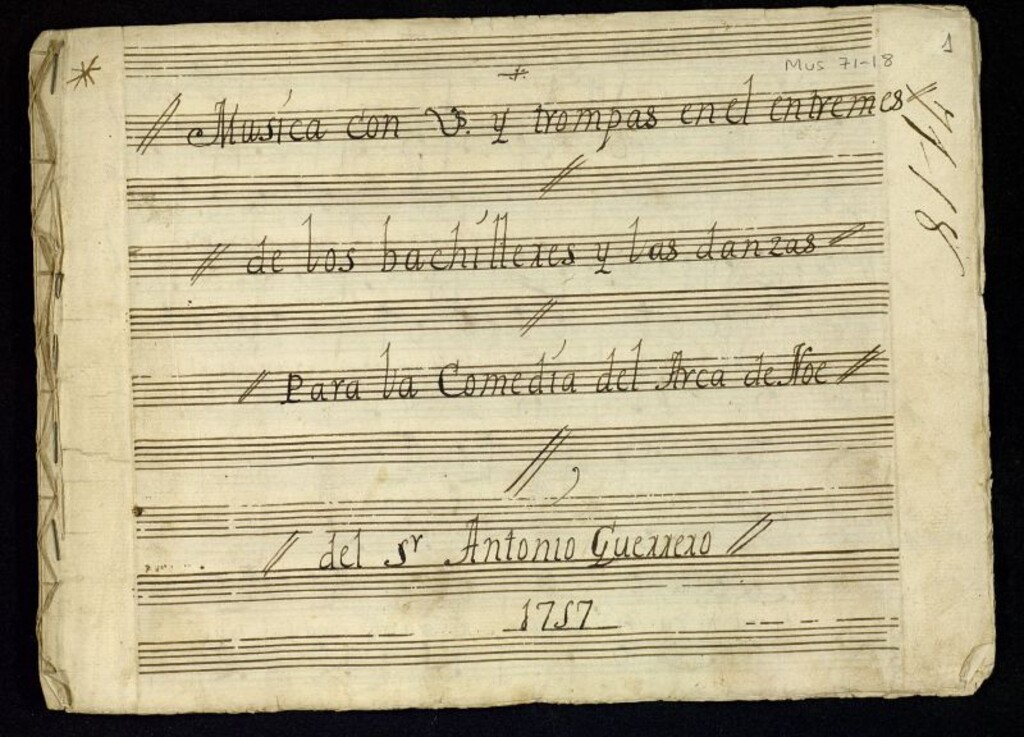 1
Mus 71-18
71-18
Musica con Vs. y trompas en el entremes
de los bachilleres y las danzas
Para la Comedia del Arca de Noe
del Sr Antonio Guerrero
1757